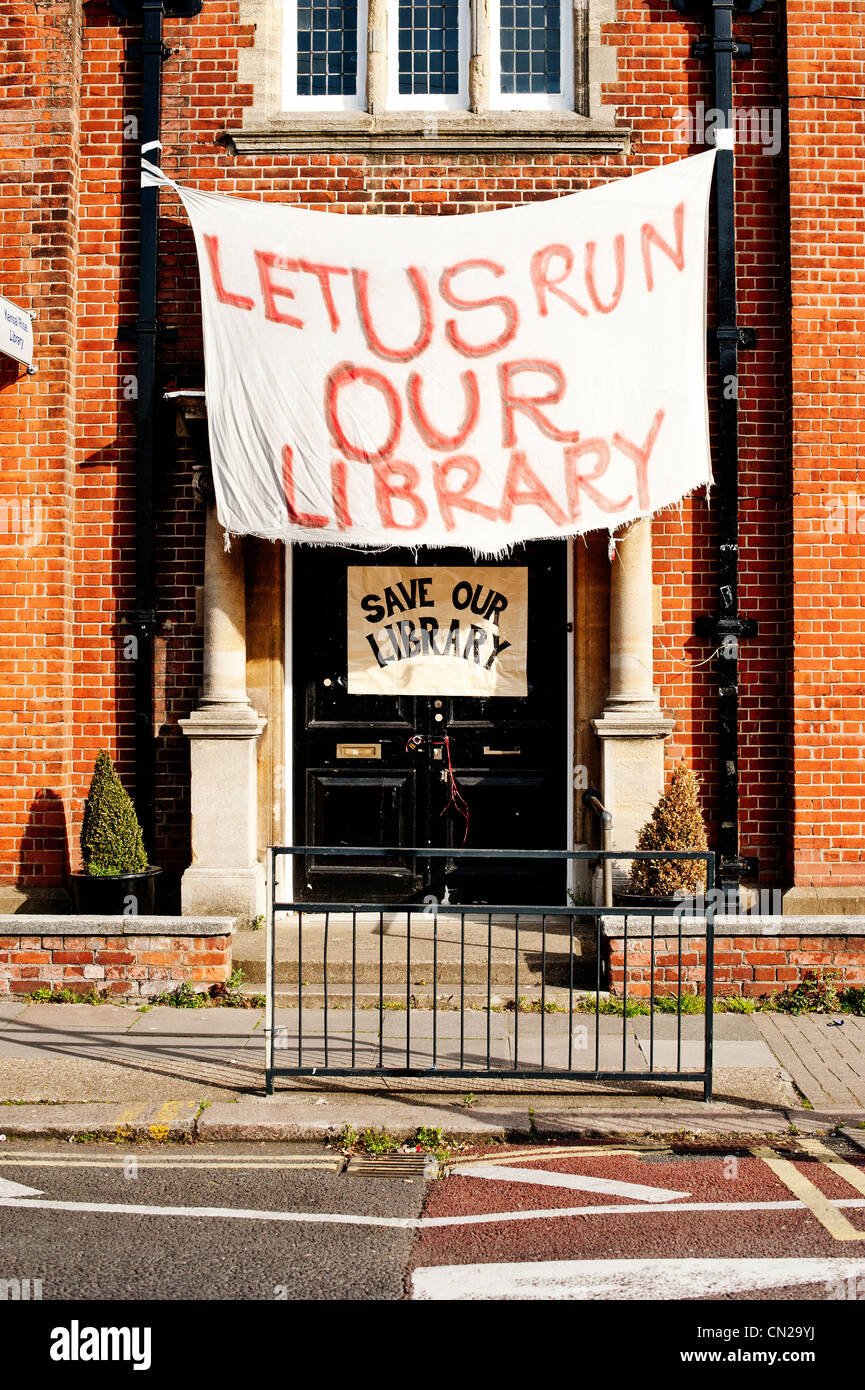 LET US RUN
OUR
LIBRARY
Kensal Rise
Library
SAVE OUR
LIBRARY
alamy
Image ID: CN29YJ
www.alamy.com